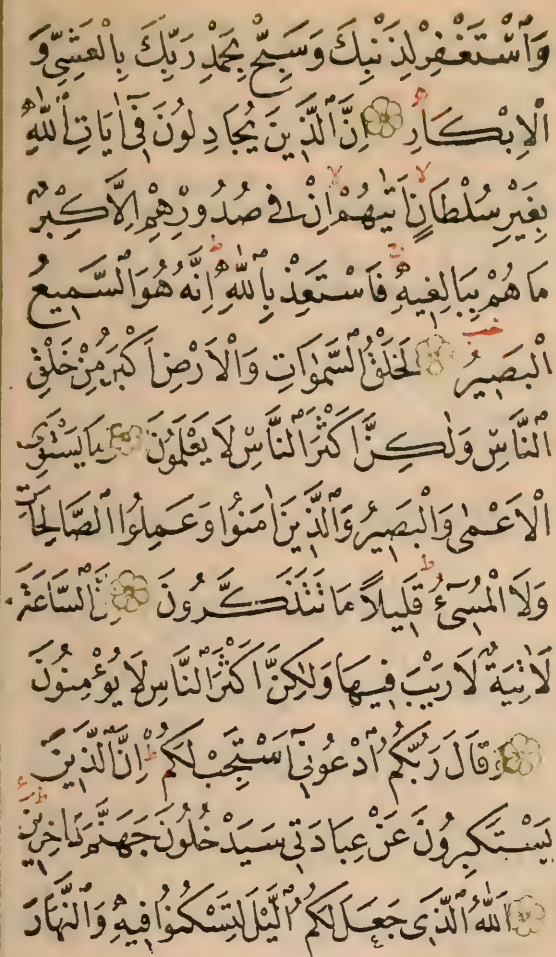 وَٱسْتَغْفِرْ لِذَنْبِكَ وَسَبِّحْ بِحَمْدِ رَبِّكَ بِالْعَشِيِّ وَ
الْاِبْكَارِ اِنَّ ٱلَّذِينَ يُجَادِلُونَ فِٓى اٰيَاتِ ٱللّٰهِ
بِغَيْرِ سُلْطَانٍ اَتٰيهُمْ اِنْ فِى صُدُورِهِمْ اِلَّا كِبْرٌ
مَا هُمْ بِبَالِغِيهِ فَاسْتَعِذْ بِٱللّٰهِ اِنَّهُ هُوَ ٱلسَّمِيعُ
الْبَصِيرُ لَخَلْقُ ٱلسَّمٰوَاتِ وَالْاَرْضِ اَكْبَرُ مِنْ خَلْقِ
ٱلنَّاسِ وَلٰكِنَّ اَكْثَرَ ٱلنَّاسِ لَا يَعْلَمُونَ وَمَا يَسْتَوِى
الْاَعْمٰى وَالْبَصِيرُ وَٱلَّذِينَ اٰمَنُوا وَعَمِلُوا ٱلصَّالِحَاتِ
وَلَا الْمُسِٓىءُ قَلِيلًا مَا تَتَذَكَّرُونَ اِنَّ ٱلسَّاعَةَ
لَاٰتِيَةٌ لَا رَيْبَ فِيهَا وَلٰكِنَّ اَكْثَرَ ٱلنَّاسِ لَا يُؤْمِنُونَ
وَقَالَ رَبُّكُمُ ٱدْعُونِٓى اَسْتَجِبْ لَكُمْ اِنَّ ٱلَّذِينَ
يَسْتَكْبِرُونَ عَنْ عِبَادَتِى سَيَدْخُلُونَ جَهَنَّمَ دَاخِرِينَ
ٱللّٰهُ ٱلَّذِى جَعَلَ لَكُمُ ٱلَّيْلَ لِتَسْكُنُوا فِيهِ وَٱلنَّهَارَ